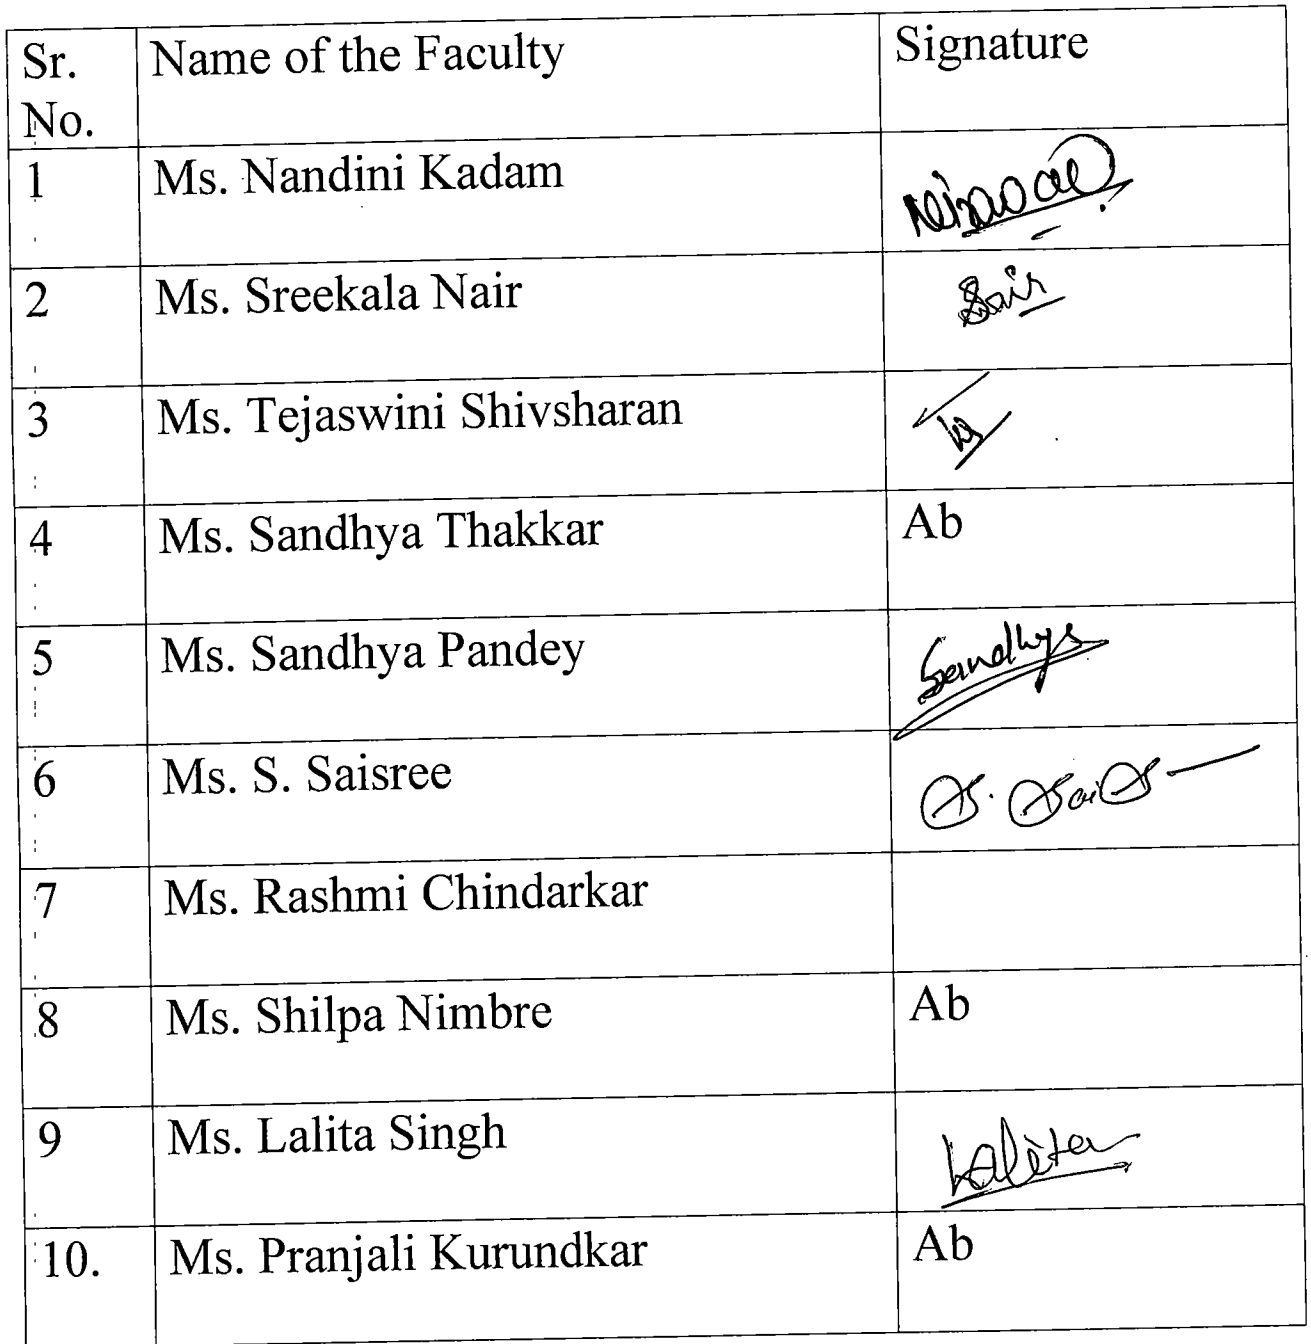 Sr. Name of the Faculty Signature
No.
1 Ms. Nandini Kadam
2 Ms. Sreekala Nair
3 Ms. Tejaswini Shivsharan
4 Ms. Sandhya Thakkar Ab
5 Ms. Sandhya Pandey Sandhya
6 Ms. S. Saisree
7 Ms. Rashmi Chindarkar
8 Ms. Shilpa Nimbre Ab
9 Ms. Lalita Singh Lalita
10. Ms. Pranjali Kurundkar Ab